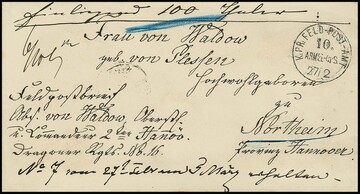 Einliegend 100 Thaler
Frau von Waldow
geb. von Plessen
Hochwohlgeboren
K.PR.FELD-POST-AMT
10.
ARMEE-CORPS
27/2
Feldpostbrief
Abs. von Waldow, Oberstlt.
u. Commandeur 2ten Hannöv.
Dragoner Rgts. No. 16.
zu
Northeim
Provinz Hannover
No 7 vom 27. Febr am 3 März erhalten.